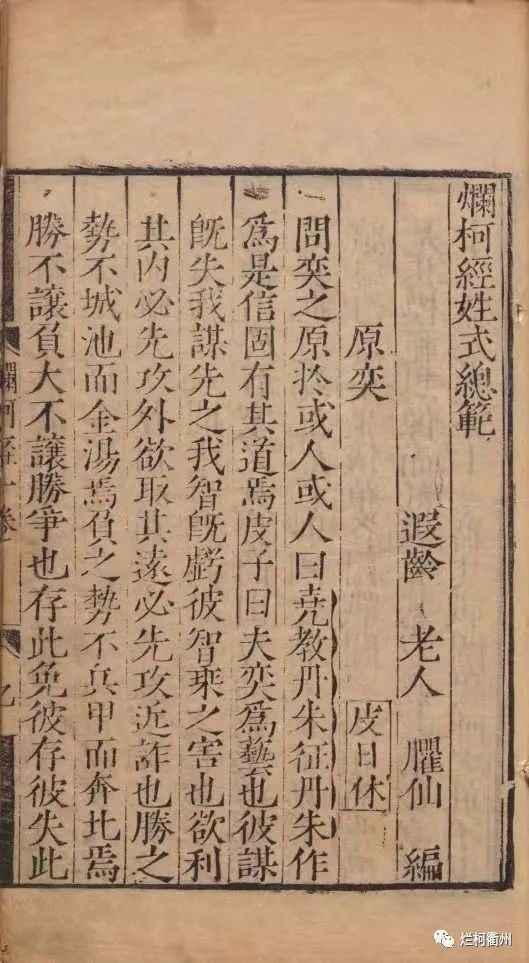 爛柯經姓式總範
遐齡 老人 臞仙 編
原奕 皮日休
問奕之原扵或人或人曰尭教丹朱征丹朱作
爲是信固有其道焉皮子曰夫奕爲藝也彼謀
既失我謀先之我智既虧彼智乗之害也欲利
其内必先攻外欲取其遠必先攻近詐也勝之
勢不城池而金湯焉負之勢不兵甲而奔北焉
勝不讓負大不讓勝爭也存此免彼存彼失此
爛柯經一卷
烂柯衢州